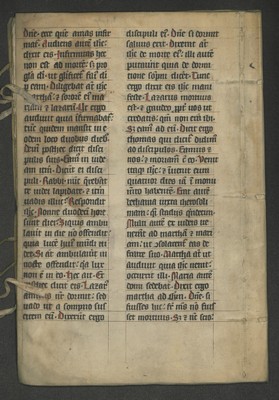 dn̄e. ecce que͛ amas infir
mat᷑. Audiens aut̄ ih̄c:
dixit eis. Infirmitas hec
non est ad morte: s; pro
gl̄a di. ut glificet᷑ fili᷒ di
p eam. Diligebat aut̄ ih̄c
martha. ⁊ sorore ei᷒ ma
riam ⁊ lazar̄. Ut ergo
audiuit quia infirmabat᷑
tūc quidem mansit in e
odem loco duobus dieb᷒.
Dein post hec dixit disci
pulis suis. Eam᷒ in iude
am itm̄. Dicūt ei disci
puli. Rabbi: nūc q̄rebāt
te iudei lapidare: ⁊ itm̄
uadis illuc. Respondit
ih̄c. Nonne duodeci hore
sunt diei. Siquis ambu
lauit in die nō offendit:
quia lucē hui᷒ mūdi ui
det. Si aut̄ ambulauit in
nocte offendit: q̄a lux
non ē in eo. Hec ait. Et
post hec dixit eis. Lazar᷒
amic᷒ n̄r dormit: sed
uado ut a sompno sus
citem eū. Dixerūt ergo
discipuli ei᷒. Dn̄e si dormit
saluus erit. Dixerat aut̄
ih̄c de morte ei᷒. illi aut̄
putauerūt quia de dormi
tione sopni dicet᷑. Tunc
ergo dixit eis ih̄c mani
feste. Lazarus mortuus
ē: ⁊ gaudeo ppt̄ uos ut
credatis: q̄m non erā ibi.
Sz eam᷒ ad eū. Dixit ergo
thomas qui dicit᷑ didim᷒
ad condiscipulos. Eam᷒ ⁊
nos: ⁊ moriam᷑ cū eo. Venit
itaq; ih̄c: ⁊ inuenit eum
quatuor dies iā ī monu
mto habente. Erat aut̄
bethania iuxta iherosoli
mam: q̄si stadiis quidecim.
Multi aut̄ ex iudeis ue
nerāt ad marthā ⁊ mari
am: ut solarent᷑ eas de
fratre suo. Martha g̊ ut
audiuit quia ih̄c uenit:
occurrit illi. Maria aut̄
domi sedebat. Dixit ergo
martha ad ih̄m. Dn̄e: si
fuisses hic: fr̄ me᷒ nō fuis
set mortuus. Sz ⁊ nc̄ scio: